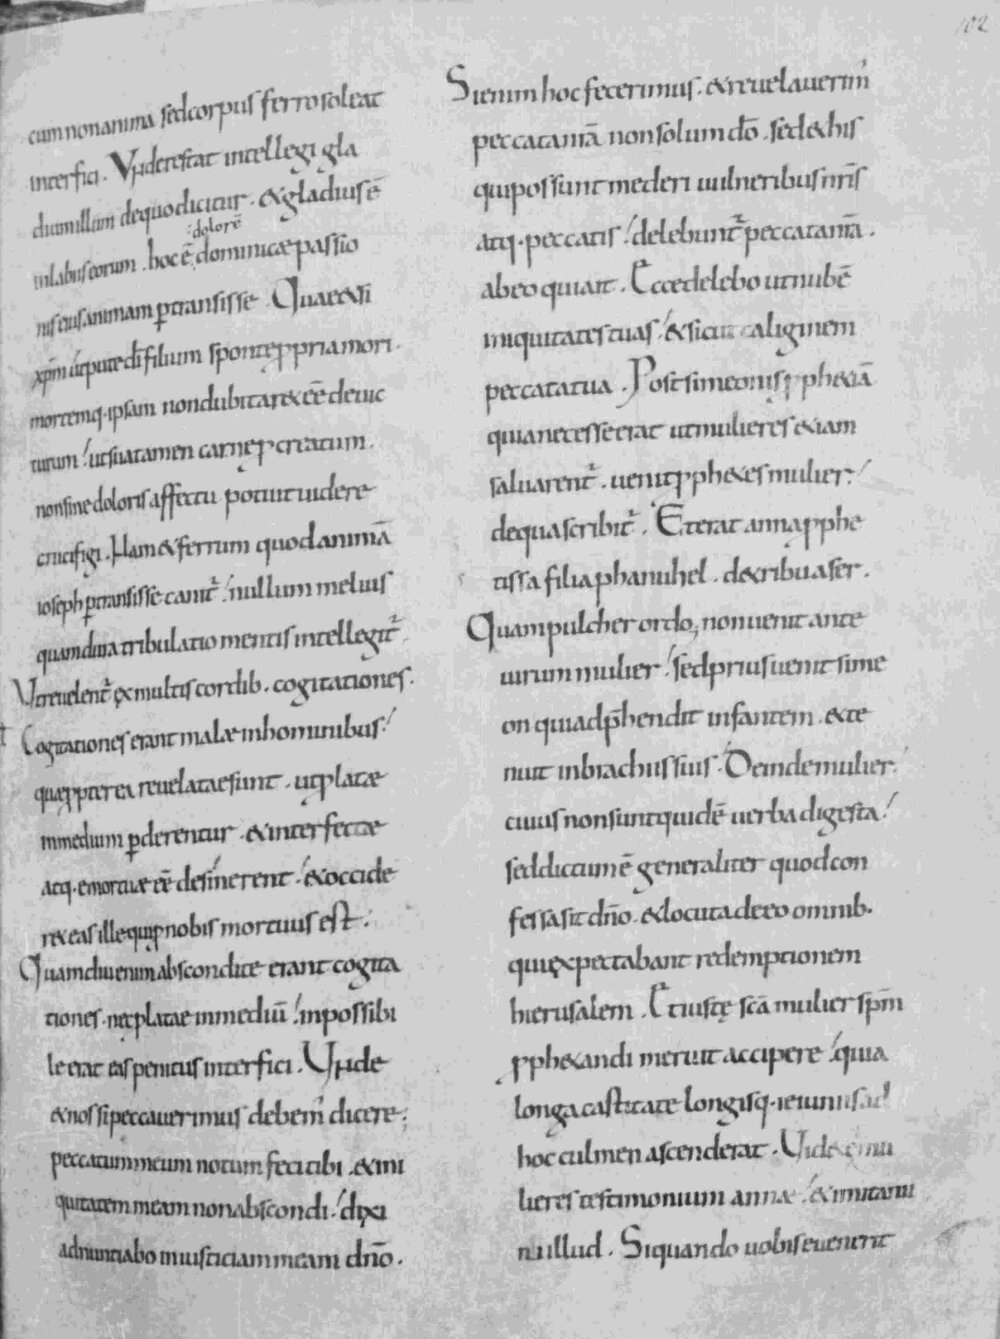 102
cum non anima sed corpus ferro soleat
interfici . Unde restat intellegi gla
dium illum de quo dicitur . & gladius ē
:dolorē
in labiis eorum . hoc ē; dominicæ passio
nis eius animam p̱transisse . Quae & si
xp̄m utpute dī filium sponte ppria mori .
mortemq· ipsam non dubitar& eē deuic
turum ! ut sua tamen carne pcreatum .
non sine doloris affectu potuit uidere
crucifigi . Nam & ferrum quod animā
ioseph p̱transisse canit̄ ! nullum melius
quam dira tribulatio mentis intellegit̄ .
Ut reuelent̄ ex multis cordib· cogitationes .
Cogitationes erant malæ in hominibus !
quæ ppterea reuelatae sunt . ut platæ
in medium p̱derentur . & interfectæ
atq· emortuæ eē desinerent ! & occide
r& eas ille qui p nobis mortuus est .
Quamdiu enim absconditæ erant cogita
tiones . nec platae in mediū ! inpossibi
le erat eas penitus interfici . Unde
& nos si peccauerimus debem' dicere ;
peccatum meum notum feci tibi . & ini
quitatem meam non abscondi ! dixi
adnuntiabo iniusticiam meam dn̄o .
Si enim hoc fecerimus . & reuelauerim'
peccata nr̄a non solum dō . sed & his
qui possunt mederi uulneribus nr̄is
atq· peccatis ! delebunt̄ peccata nr̄a .
ab eo qui ait . Ecce delebo ut nubē
iniquitates tuas ! & sicut caliginem
peccata tua . Post simeonis pph&iā
quia necesse erat ut mulieres etiam
saluarent̄ . uenit pph&es mulier !
de qua scribit̄ . Et erat anna pphe
tissa filia phanuhel . de tribu aser .
Quam pulcher ordo, non uenit ante
uirum mulier ! sed prius uenit sime
on qui adp̄hendit infantem . & te
nuit in brachiis suis . Deinde mulier .
cuius non sunt quidē uerba digesta !
sed dictum ē generaliter quod con
fessa sit dn̄o . & locuta de eo omnib·
qui expectabant redemptionem
hierusalem . Et iuste scā mulier spm̄
pph&andi meruit accipere ! quia
longa castitate longisq· ieiuniis ad
hoc culmen ascenderat . Uidete mu
lieres testimonium annæ ! & imitami
n illud . Si quando uobis euenerit